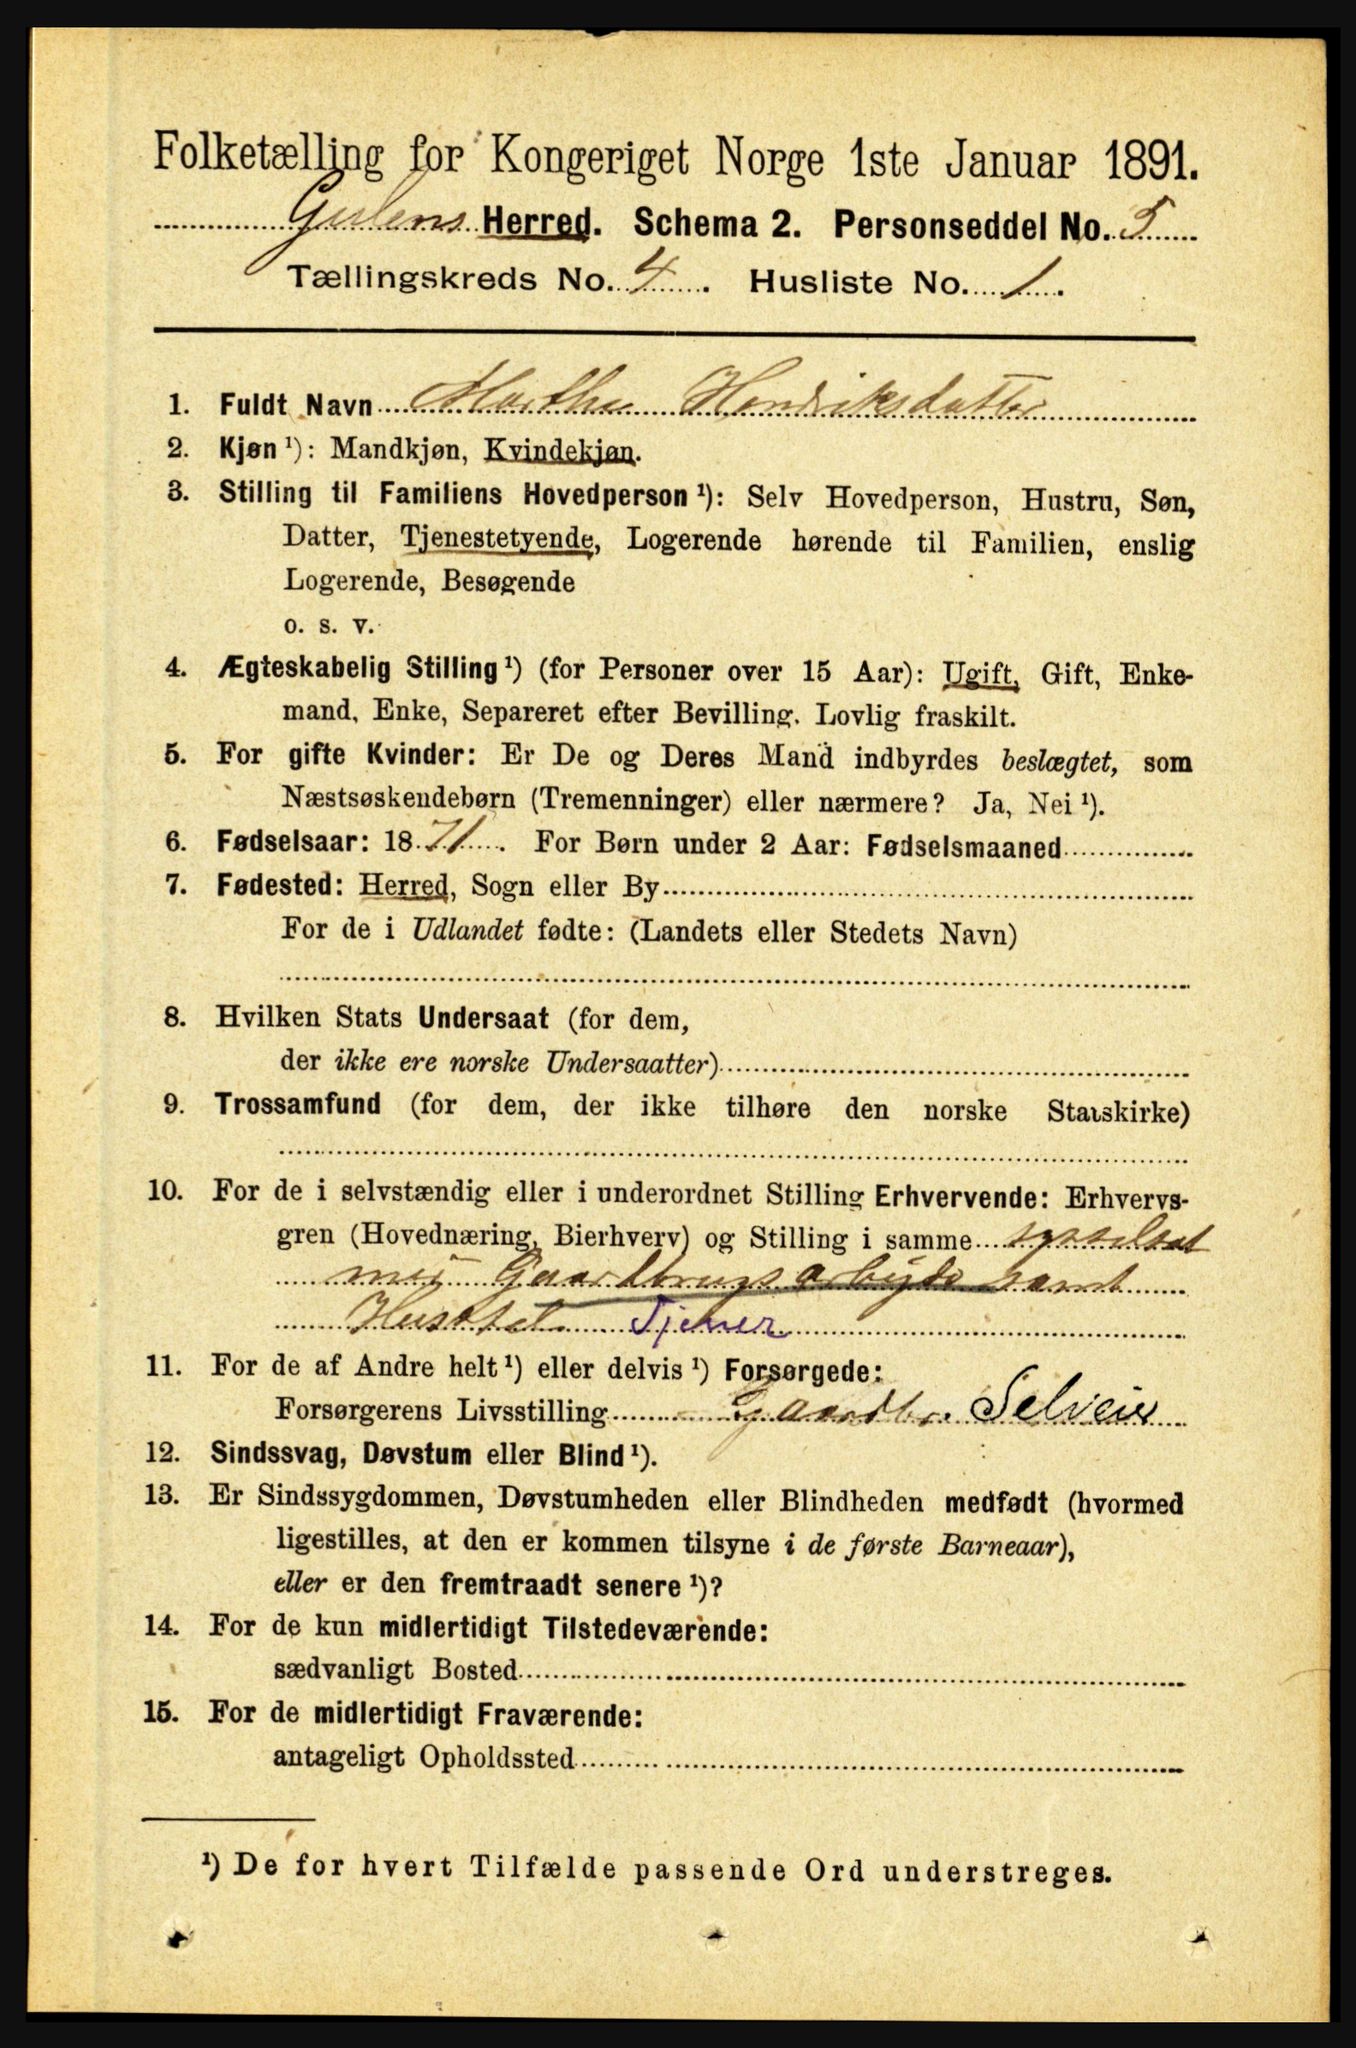 Folketælling for Kongeriget Norge 1ste Januar 1891.
Gulens Herred. Schema 2. Personseddel No. 5
Tællingskreds No. 4. Husliste No. 1.
1. Fuldt Navn Marthe Hendriksdatter
2. Kjøn ¹): Mandkjøn, Kvindekjøn.
3. Stilling til Familiens Hovedperson ¹): Selv Hovedperson, Hustru, Søn,
Datter, Tjenestetyende, Logerende hørende til Familien, enslig
Logerende, Besøgende
o. s. v.
4. Ægteskabelig Stilling ¹) (for Personer over 15 Aar): Ugift, Gift, Enke-
mand, Enke, Separeret efter Bevilling. Lovlig fraskilt.
5. For gifte Kvinder: Er De og Deres Mand indbyrdes beslægtet, som
Næstsøskendebørn (Tremenninger) eller nærmere? Ja, Nei ¹).
6. Fødselsaar: 1871. For Børn under 2 Aar: Fødselsmaaned
7. Fødested: Herred, Sogn eller By
For de i Udlandet fødte: (Landets eller Stedets Navn)
8. Hvilken Stats Undersaat (for dem,
der ikke ere norske Undersaatter)
9. Trossamfund (for dem, der ikke tilhøre den norske Statskirke)
10. For de i selvstændig eller i underordnet Stilling Erhvervende: Erhvervs-
gren (Hovednæring, Bierhverv) og Stilling i samme sysselsat
med Gaardbrugsarbyde samt
Husstel Tjener
11. For de af Andre helt ¹) eller delvis ¹) Forsørgede:
Forsørgerens Livsstilling Gaardbr. Selveier
12. Sindssvag, Døvstum eller Blind ¹).
13. Er Sindssygdommen, Døvstumheden eller Blindheden medfødt (hvormed
ligestilles, at den er kommen tilsyne i de første Barneaar),
eller er den fremtraadt senere ¹)?
14. For de kun midlertidigt Tilstedeværende:
sædvanligt Bosted
15. For de midlertidigt Fraværende:
antageligt Opholdssted
¹) De for hvert Tilfælde passende Ord understreges.